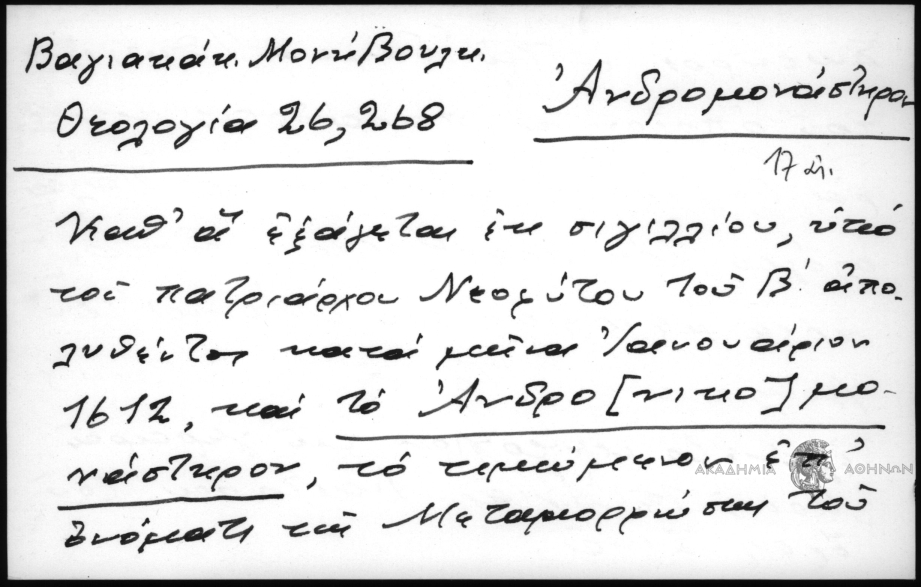 Βαγιακάκ. Μονή Βουλκ.
Θεολογία 26, 268
Ἀνδρομονάστηρον
17 αἰ.
Καθ' ἅ ἐξάγεται ἐκ σιγιλλίου, ὑπό
τοῦ πατριάρχου Νεοφύτου τοῦ Β΄ ἀπο-
λυθέντος κατά μῆνα Ἰανουάριον
1612, καί τό Ἀνδρο[νικο]μο-
νάστηρον, τό τιμώμενον ἐπ'
ὀνόματι τῆς Μεταμορφώσεως τοῦ
ΑΚΑΔΗΜΙΑ ΑΘΗΝΩΝ